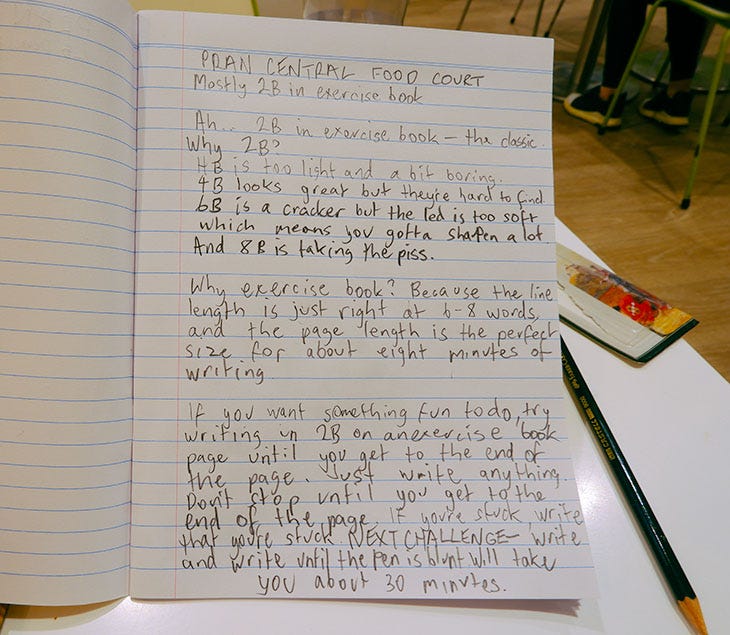 PRAN CENTRAL FOOD COURT
Mostly 2B in exercise book
Ah.. 2B in exercise book – the classic.
Why 2B?
HB is too light and a bit boring.
4B looks great but they're hard to find.
6B is a cracker but the led is too soft
which means you gotta shapen a lot.
And 8B is taking the piss.
Why exercise book? Because the line
length is just right at 6-8 words,
and the page length is the perfect
size for about eight minutes of
writing
If you want something fun to do, try
writing in 2B on an exercise book
page until you get to the end of
the page. Just write anything.
Don't stop until you get to the
end of the page. If you're stuck, write
that you're stuck. NEXT CHALLENGE– write
and write until the pen is blunt will take
you about 30 minutes.
CASTELL 9000